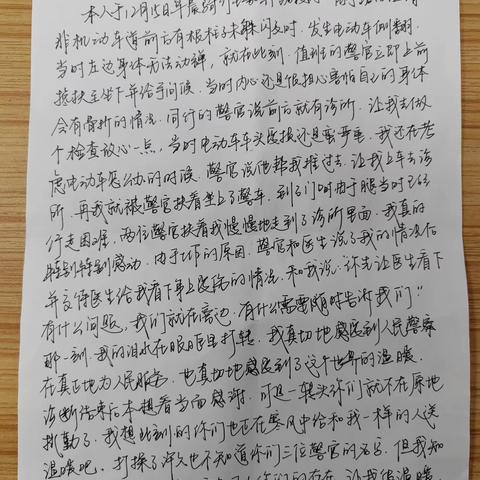 本人于12月15日早晨骑
非机动车道前方有根柱子未躲闪及时，发生电动车侧翻，
当时左边身体无法动弹，就在此刻，值班的警官立即上前
搀扶至坐下并给予问候，当时内心还是很担心害怕自己的身体
会有骨折的情况，同行的警官说前方就有诊所，让我去做
个检查放心一点，当时电动车车头受损还是蛮严重，我还在考
虑电动车怎么办的时候，警官说他帮我推过去，让我上车去诊
所，再我就被警官扶着坐上了警车，到了门口时由于腿当时已经
行走困难，两位警官扶着我慢慢地走到了诊所里面，我真的
特别特别感动，由于工作的原因，警官和医生说了我的情况后
并交待医生给我看下身上受伤的情况，和我说"你先让医生看下
有什么问题，我们就在旁边，有什么需要随时告诉我们"
那一刻，我的泪水在眼眶里打转，我真切地感受到人民警察
在真正地为人民服务，也真切地感受到了这个世界的温暖，
诊断结束后本想着当面感谢，可是一转头你们就不在原地
执勤了，我想此刻的你们也正在寒风中给和我一样的人送
温暖吧，打探了许久也不知道你们三位警官的名字，但我知
你们的存在，让我很温暖，